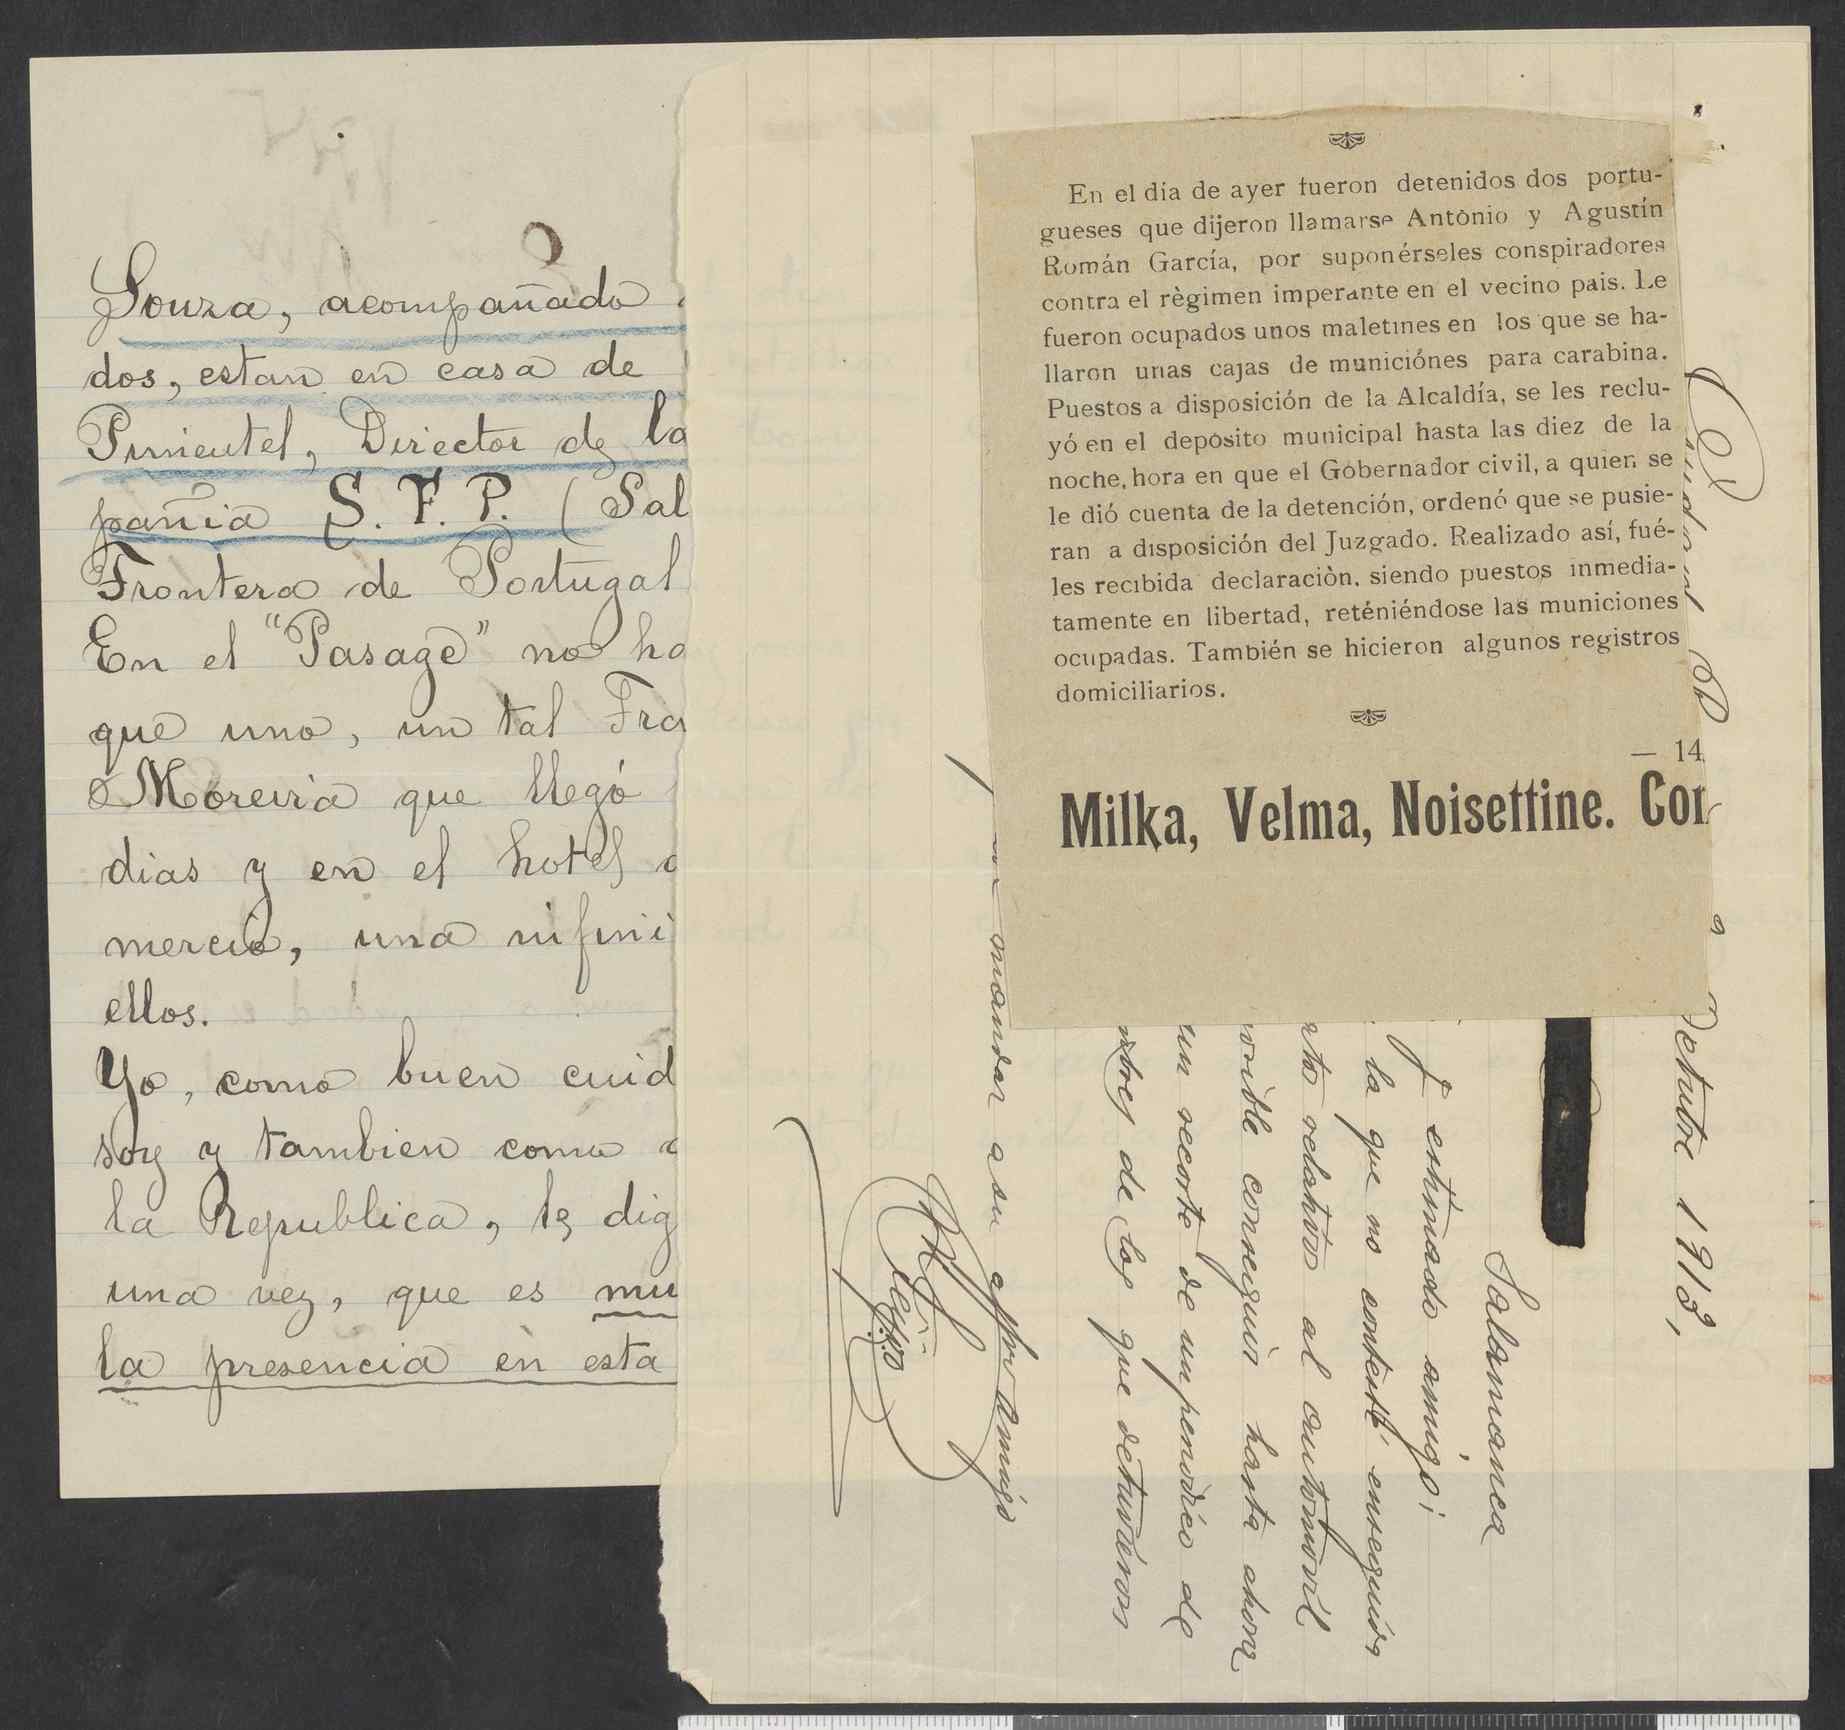 Souza, acompañado
dos, estan en casa de
Pimentel, Director de la
pañia S. F. P. (Sal
Frontera de Portugal
En el "Pasage" no ha
que uno, un tal Fra
Moreira que llegó
dias y en el hotel
mercio, una infini
ellos.
Yo, como buen cuid
soy y tambien como
la Republica, le dig
una vez, que es mu
la presencia en esta
En el día de ayer fueron detenidos dos portu-
gueses que dijeron llamarse Antònio y Agustín
Román García, por suponérseles conspiradores
contra el règimen imperante en el vecino pais. Le
fueron ocupados unos maletines en los que se ha-
llaron unas cajas de municiónes para carabina.
Puestos a disposición de la Alcaldía, se les reclu-
yó en el depòsito municipal hasta las diez de la
noche, hora en que el Gobernador civil, a quien se
le dió cuenta de la detención, ordenó que se pusie-
ran a disposición del Juzgado. Realizado así, fué-
les recibida declaraciòn, siendo puestos inmedia-
tamente en libertad, reténiéndose las municiones
ocupadas. También se hicieron algunos registros
domiciliarios.
— 14
Milka, Velma, Noisettine. Cor
Octubre 1913,
Salamanca
estimado amigo:
la que no contesté enseguida
relativo al automovil
conseguir hasta ahora
un recorte de un periodico de
de los que detuvieron
mandar a su affmo amigo